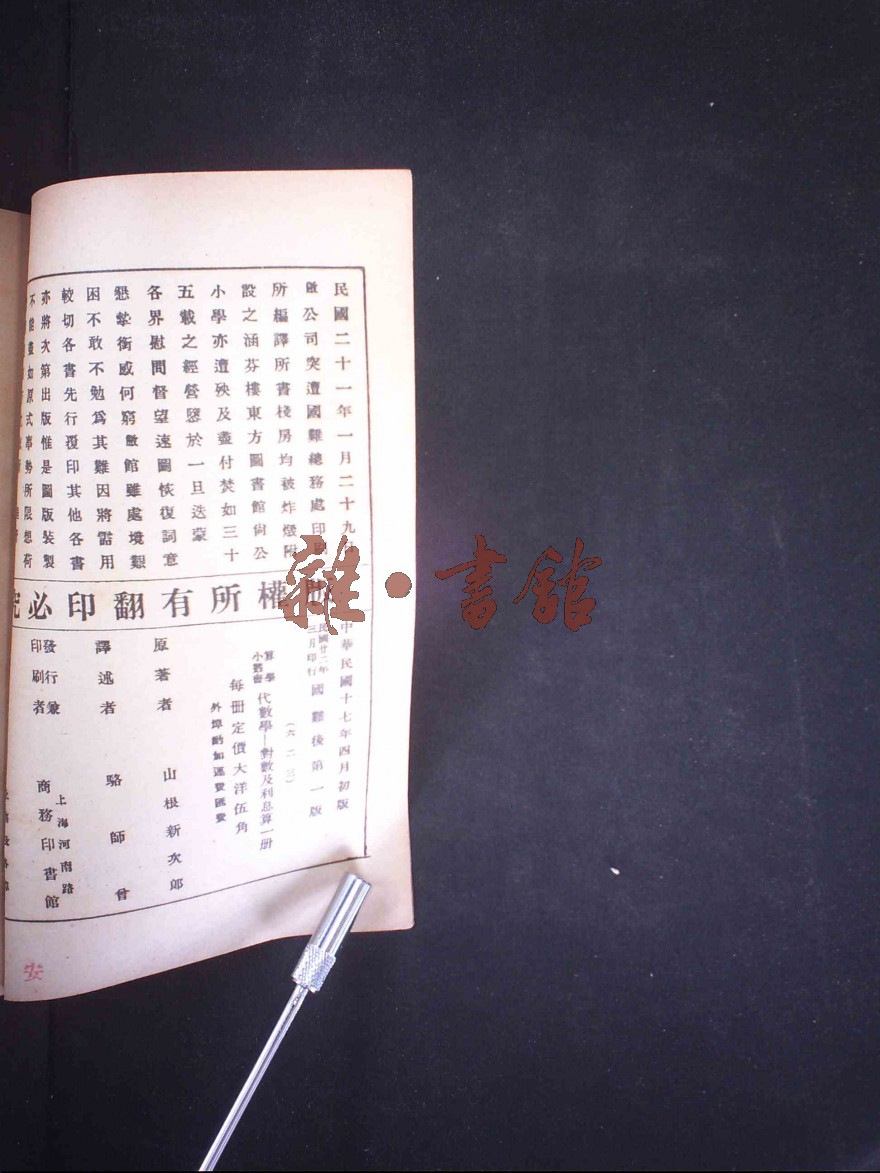 民國二十一年一月二十九日
敝公司突遭國難總務處印刷
所編譯所書棧房均被炸燬附
設之涵芬樓東方圖書館尙公
小學亦遭殃及盡付焚如三十
五載之經營隳於一旦迭蒙
各界慰問督望速圖恢復詞意
懇摯銜感何窮敝館雖處境艱
困不敢不勉爲其難因將需用
較切各書先行覆印其他各書
亦將次第出版惟是圖版裝製
不能盡如原式事勢所限想荷
權所有翻印必究
中華民國十七年四月初版
民國廿二年三月印行
國難後第一版
(六二三)
算學小叢書
代數學—對數及利息算一册
每册定價大洋伍角
外埠酌加運費匯費
原著者 山根新次郎
譯述者 駱師曾
發行兼印刷者 上海河南路 商務印書館
安
雜·書館